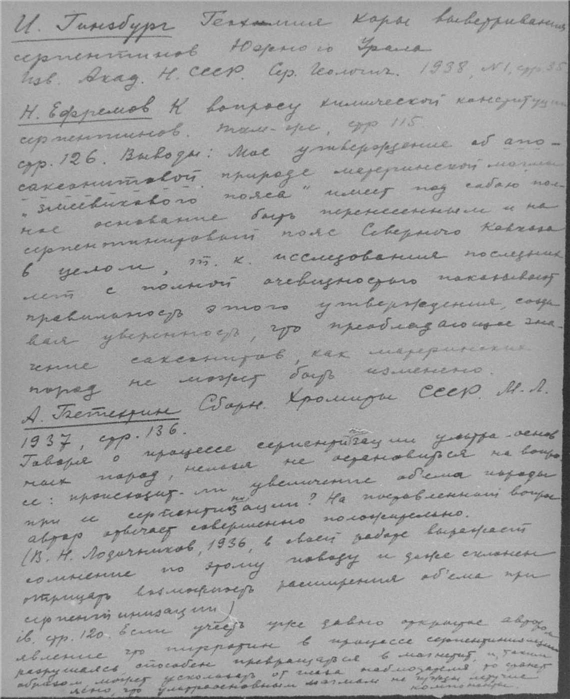 И. Гинзбург Геохимия коры выветривания
серпентинов Южного Урала
Изв. Акад. Н. СССР. Сер. Геологич. 1938, №1, стр. 35
Н. Ефремов К вопросу химической конституции
серпентинов. там-же, стр 115
стр. 126. Выводы: Мое утверждение об апо-
саксонитовой природе материнской магмы
"змеевикового пояса" имеет под собою пол-
ное основание быть перенесенным и на
серпентинитовый пояс Северного Кавказа
в целом, т. к. исследования последних
лет с полной очевидностью показывают
правильность этого утверждения, созда-
вая уверенность, что преобладающее зна-
чение саксонитов, как материнских
пород не может быть изменено.
А. Бетехтин Сборн. Хромиты СССР. М.-Л.
1937, стр. 136.
Говоря о процессе серпентинизации ультра-основ
ных пород, нельзя не остановиться на вопро
се: происходит-ли увеличение об'ема породы
при ее серпентинизации? На поставленный вопрос
автор отвечает совершенно положительно.
(В. Н. Лодочников, 1936, в своей работе выражает
сомнение по этому поводу и даже склонен
отрицать возможность расширения об'ема при
серпентинизации)
стр. 120. Если учесть уже давно открытое автором
явление что пирротин в процессе серпентинизации
разрушаясь способен превращаться в магнетит, и, таким
образом может ускользать от глаза наблюдателя, то станет
ясно, что ультраосновным магмам не чужды летучие